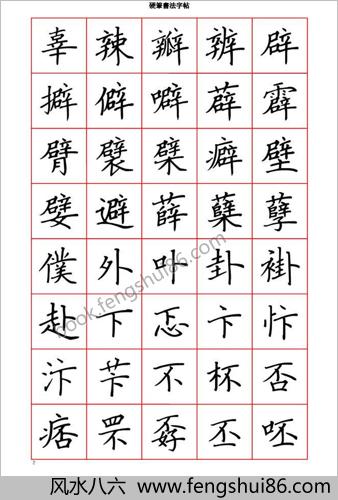 硬筆書法字帖
辜 辣 瓣 辨 辟
擗 僻 噼 薜 霹
臂 襞 檗 癖 壁
嬖 避 薛 蘗 孽
僕 外 卟 卦 褂
赴 下 忑 卞 忭
汴 苄 不 杯 否
痞 罘 孬 丕 呸
book.fengshui86.com
2
风水八六 www.fengshui86.com